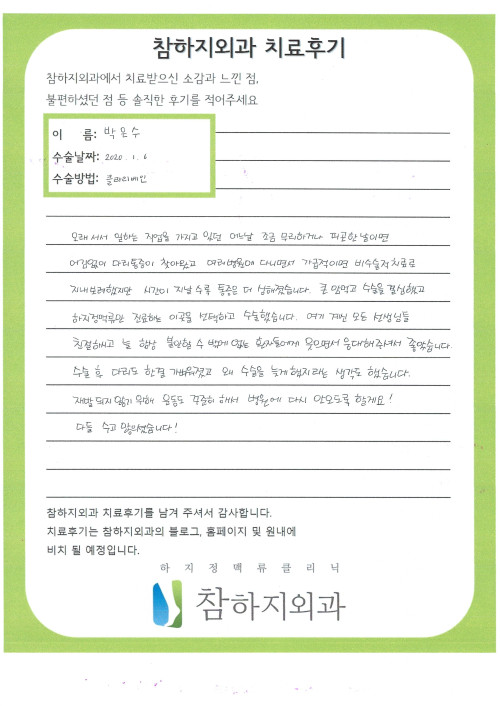 참하지외과 치료후기
참하지외과에서 치료받으신 소감과 느낀 점,
불편하셨던 점 등 솔직한 후기를 적어주세요
이 름: 박은수
수술날짜: 2020. 1. 6
수술방법: 클라리베인
오래 서서 일하는 직업을 가지고 있던 어느날 조금 무리하거나 피곤한 날이면
어김없이 다리통증이 찾아왔고 여러병원에 다니면서 가급적이면 비수술적치료로
지내보려했지만 시간이 지날수록 통증은 더 심해졌습니다. 큰 맘먹고 수술을 결심했고
하지정맥류만 진료하는 이곳을 선택하고 수술했습니다. 여기 계신 모든 선생님들
친절하시고 늘 항상 불안할 수 밖에 없는 환자들에게 웃으면서 응대해주셔서 좋았습니다.
수술 후 다리도 한결 가벼워졌고 왜 수술을 늦게했지라는 생각도 했습니다.
재발 되지 않기 위해 운동도 꾸준히 해서 병원에 다시 안오도록 할게요!
다들 수고 많으셨습니다!
참하지외과 치료후기를 남겨 주셔서 감사합니다.
치료후기는 참하지외과의 블로그, 홈페이지 및 원내에
비치 될 예정입니다.
하지정맥류클리닉
참하지외과